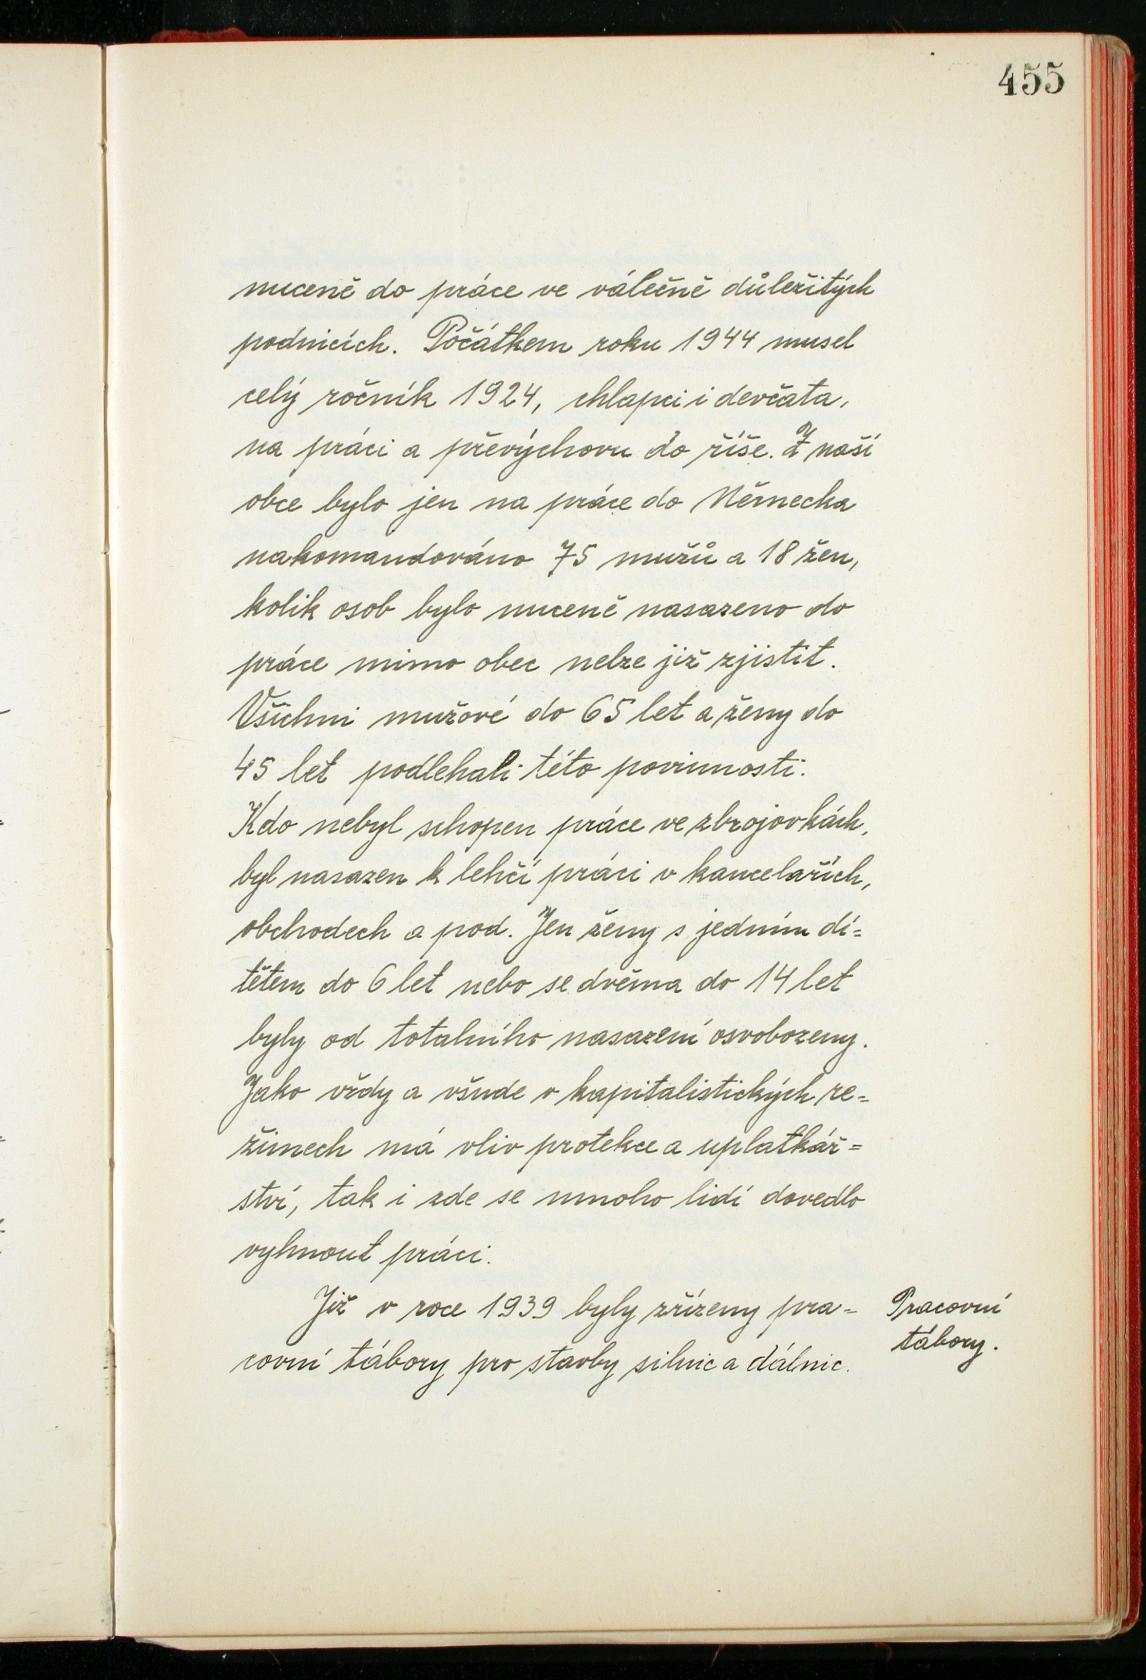 455
nuceně do práce ve válečně důležitých
podnicích. Počátkem roku 1944 musel
celý ročník 1924, chlapci i devčata,
na práci a převýchovu do říše. Z naší
obce bylo jen na práce do Německa
nakomandováno 75 mužů a 18 žen,
kolik osob bylo nuceně nasazeno do
práce mimo obec nelze již zjistit.
Všichni mužové do 65 let a ženy do
45 let podlehali této povinnosti.
Kdo nebyl schopen práce ve zbrojovkách,
byl nasazen k lehčí práci v kancelařích,
obchodech a pod. Jen ženy s jedním dí=
tětem do 6 let nebo se dvěma do 14 let
byly od totalního nasazení osvobozeny.
Jako vždy a všude v kapitalistických re=
žimech má vliv protekce a uplatkář=
ství, tak i zde se mnoho lidí dovedlo
vyhnout práci.
Již v roce 1939 byly zřízeny pra=
covní tábory pro stavby silnic a dálnic.
Pracovní
tábory.